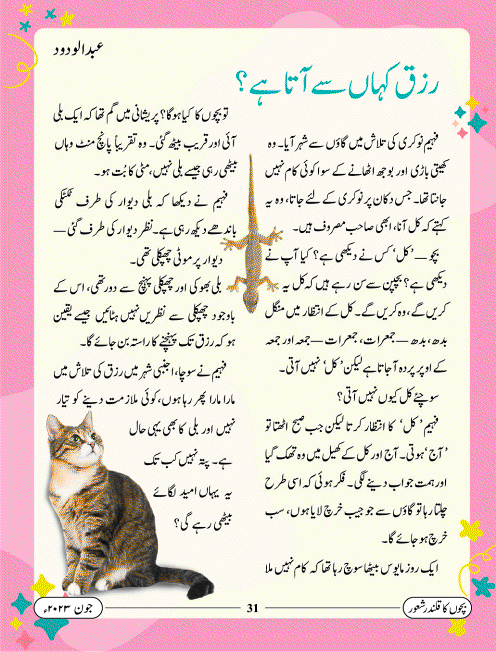 عبدالودود
رزق کہاں سے آتا ہے؟
فہیم نوکری کی تلاش میں گاؤں سے شہر آیا۔ وہ
کھیتی باڑی اور بوجھ اٹھانے کے سوا کوئی کام نہیں
جانتا تھا۔ جس دکان پر نوکری کے لئے جاتا، وہ یہ
کہتے کہ کل آنا، ابھی صاحب مصروف ہیں۔
بچو — ’کل‘ کس نے دیکھی ہے؟ کیا آپ نے
دیکھی ہے؟ بچپن سے سن رہے ہیں کہ کل یہ
کریں گے، وہ کریں گے۔ کل کے انتظار میں منگل
بدھ، بدھ — جمعرات، جمعرات — جمعہ اور جمعہ
کے اوپر پردہ آ جاتا ہے لیکن ’کل‘ نہیں آتی۔
سوچئے کل کیوں نہیں آتی؟
فہیم ’کل‘ کا انتظار کرتا لیکن جب صبح اٹھتا تو
’آج‘ ہوتی۔ آج اور کل کے کھیل میں وہ تھک گیا
اور ہمت جواب دینے لگی۔ فکر ہوئی کہ اسی طرح
چلتا رہا تو گاؤں سے جو جیب خرچ لایا ہوں، سب
خرچ ہو جائے گا۔
ایک روز مایوس بیٹھا سوچ رہا تھا کہ کام نہیں ملا
تو بچوں کا کیا ہوگا؟ پریشانی میں گم تھا کہ ایک بلی
آئی اور قریب بیٹھ گئی۔ وہ تقریباً پانچ منٹ وہاں
بیٹھی رہی جیسے بلی نہیں، مٹی کا بت ہو۔
فہیم نے دیکھا کہ بلی دیوار کی طرف ٹکٹکی
باندھے دیکھ رہی ہے۔ نظر دیوار کی طرف گئی —
دیوار پر موٹی چھپکلی تھی۔
بلی بھوکی اور چھپکلی پہنچ سے دور تھی، اس کے
باوجود چھپکلی سے نظریں نہیں ہٹائیں جیسے یقین
ہو کہ رزق تک پہنچنے کا راستہ بن جائے گا۔
فہیم نے سوچا، اجنبی شہر میں رزق کی تلاش میں
مارا مارا پھر رہا ہوں، کوئی ملازمت دینے کو تیار
نہیں اور بلی کا بھی یہی حال
ہے۔ پتہ نہیں کب تک
یہ یہاں امید لگائے
بیٹھی رہے گی؟
بچوں کا قلندر شعور
31
جون ۲۰۲۳ء